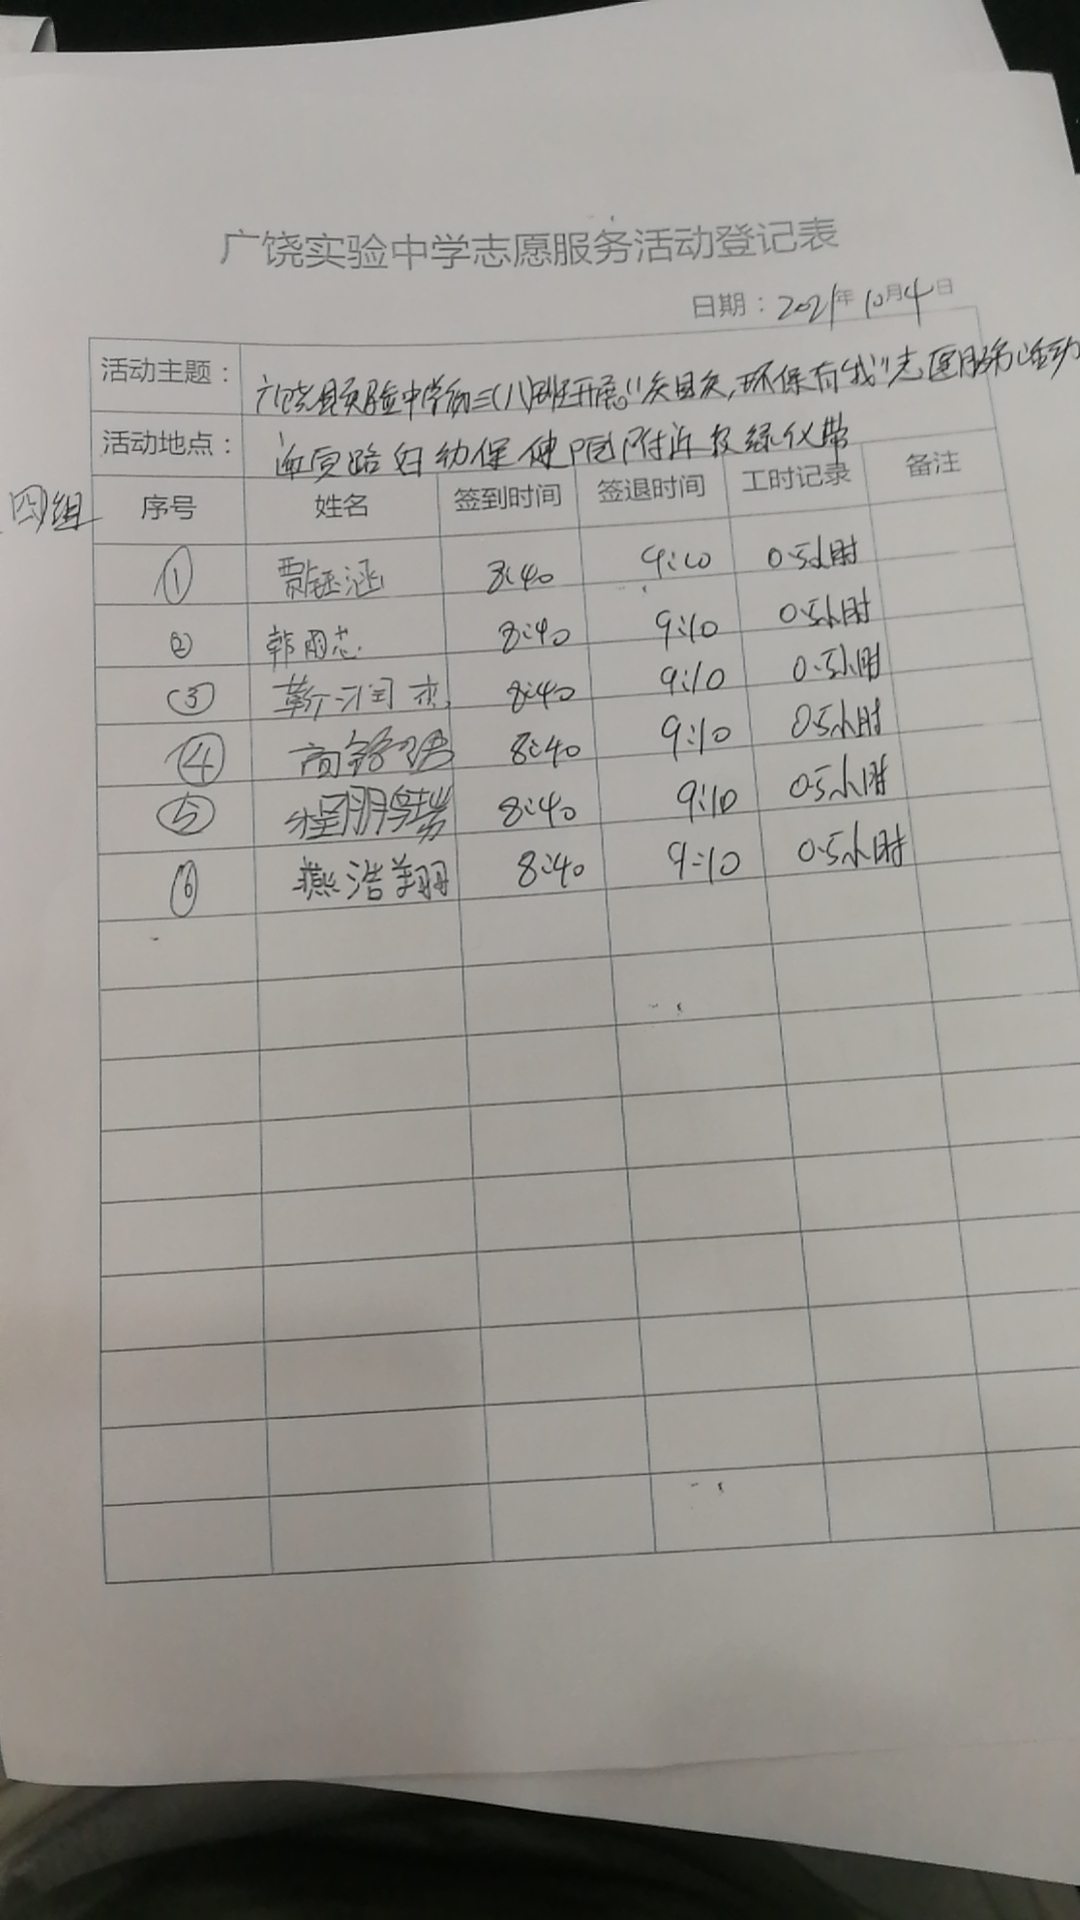 广饶实验中学志愿服务活动登记表
日期：2021年10月4日
活动主题： 广饶县实验中学初三(八)班开展"美国庆,环保有我"志愿服务活动
活动地点： 路妇幼保健院附近及绿化带
四组
序号 姓名 签到时间 签退时间 工时记录 备注
① 贾钰涵 8:40 9:10 0.5小时
② 韩雨芯 8:40 9:10 0.5小时
③ 靳润杰 8:40 9:10 0.5小时
④ 8:40 9:10 0.5小时
⑤ 程鹏 8:40 9:10 0.5小时
⑥ 燕浩翔 8:40 9:10 0.5小时